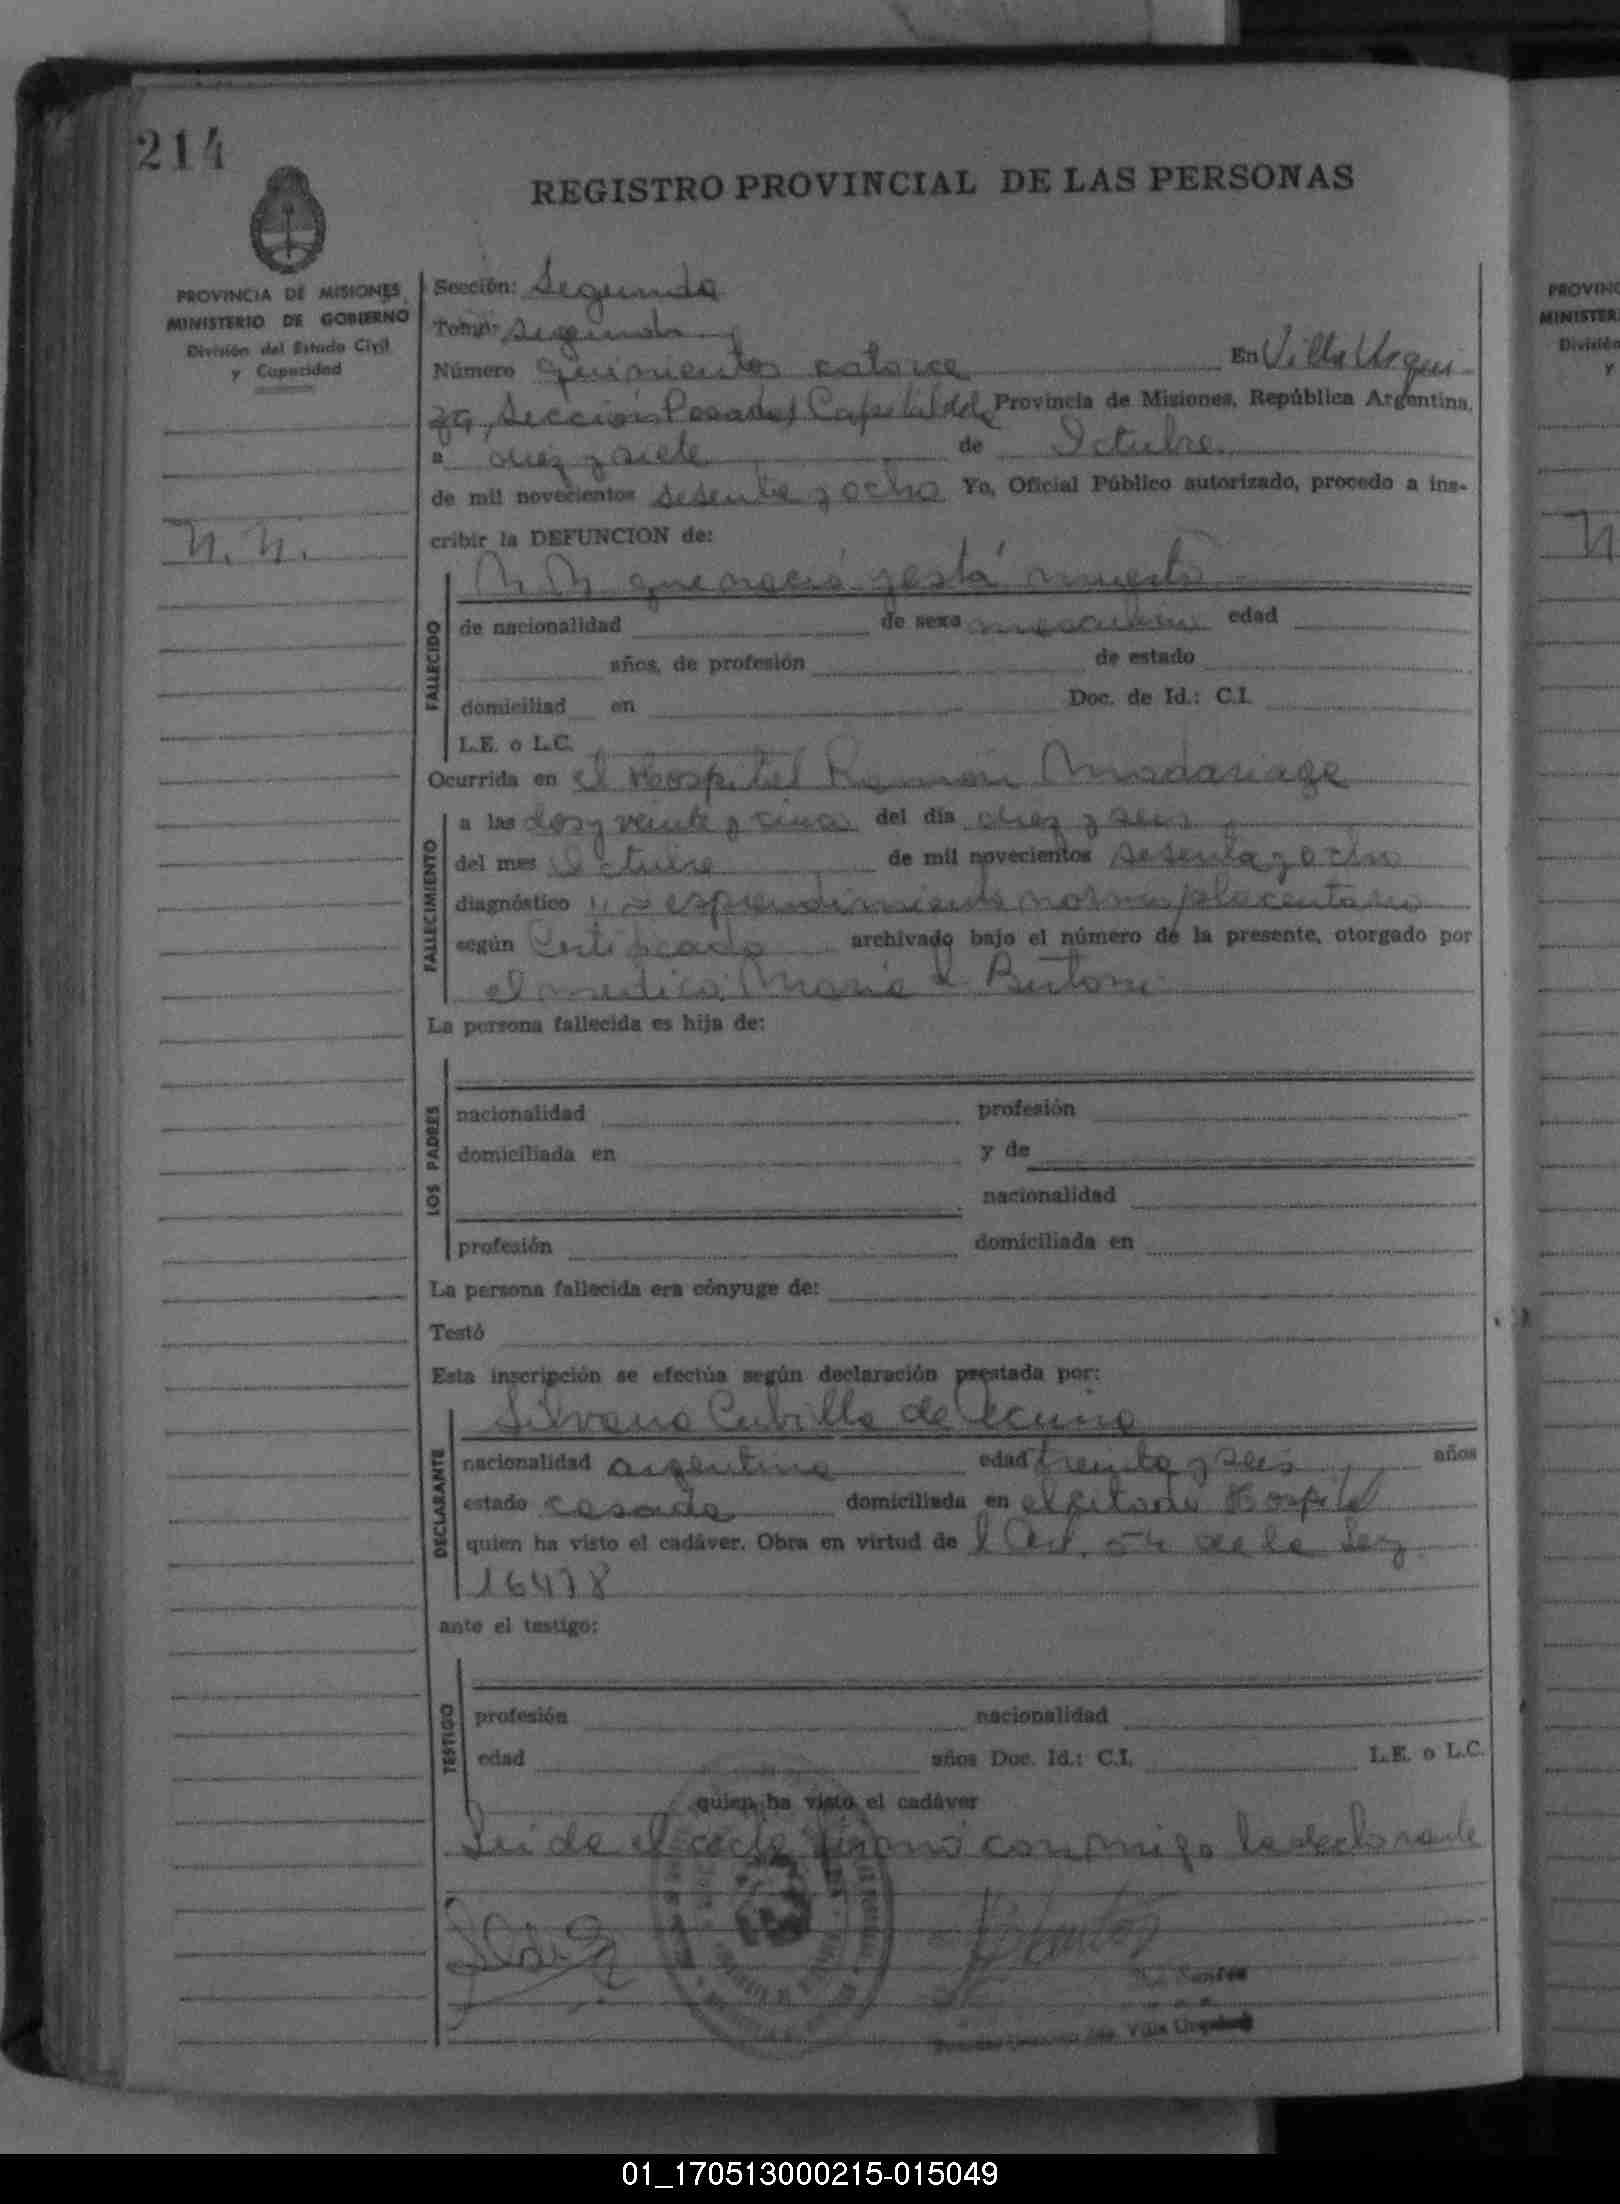 214
REGISTRO PROVINCIAL DE LAS PERSONAS
PROVINCIA DE MISIONES
MINISTERIO DE GOBIERNO
División del Estado Civil
y Capacidad
N. N.
Sección: Segunda
Tomo: segundo
Número quinientos catorce En Villa Urqui
za, Sección Posadas Capital de la Provincia de Misiones, República Argentina,
a diez y siete de Octubre
de mil novecientos sesenta y ocho Yo, Oficial Público autorizado, procedo a ins-
cribir la DEFUNCION de:
N N que nació y está muerto
FALLECIDO
de nacionalidad de sexo masculino edad
años, de profesión de estado
domiciliad en Doc. de Id.: C.I.
L.E. o L.C.
Ocurrida en el Hospital Ramón Madariaga
FALLECIMIENTO
a las dos y veinte y cinco del día diez y seis
del mes Octubre de mil novecientos sesenta y ocho
diagnóstico placentario
según Certificado archivado bajo el número de la presente, otorgado por
el médico María
La persona fallecida es hija de:
LOS PADRES
nacionalidad profesión
domiciliada en y de
nacionalidad
profesión domiciliada en
La persona fallecida era cónyuge de:
Testó
Esta inscripción se efectúa según declaración prestada por:
Silvana Cubilla de Acuña
DECLARANTE
nacionalidad argentina edad treinta y seis años
estado casada domiciliada en el citado Hospital
quien ha visto el cadáver. Obra en virtud de l Art. 54 de la Ley
16478
ante el testigo:
TESTIGO
profesión nacionalidad
edad años Doc. Id.: C.I. L.E. o L.C.
quien ha visto el cadáver
Leida el acta firmó conmigo la declarante
Villa Urquiza
PROVINC
MINISTER
División
y
N
01_170513000215-015049